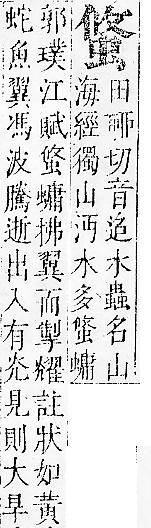 䖺
田聊切音迢水蟲名山
海經獨山沔水多䖺䗤
郭璞江賦䖺䗤拂翼而掣耀註狀如黃
蛇魚翼馮波騰逝出入有灮見則大旱